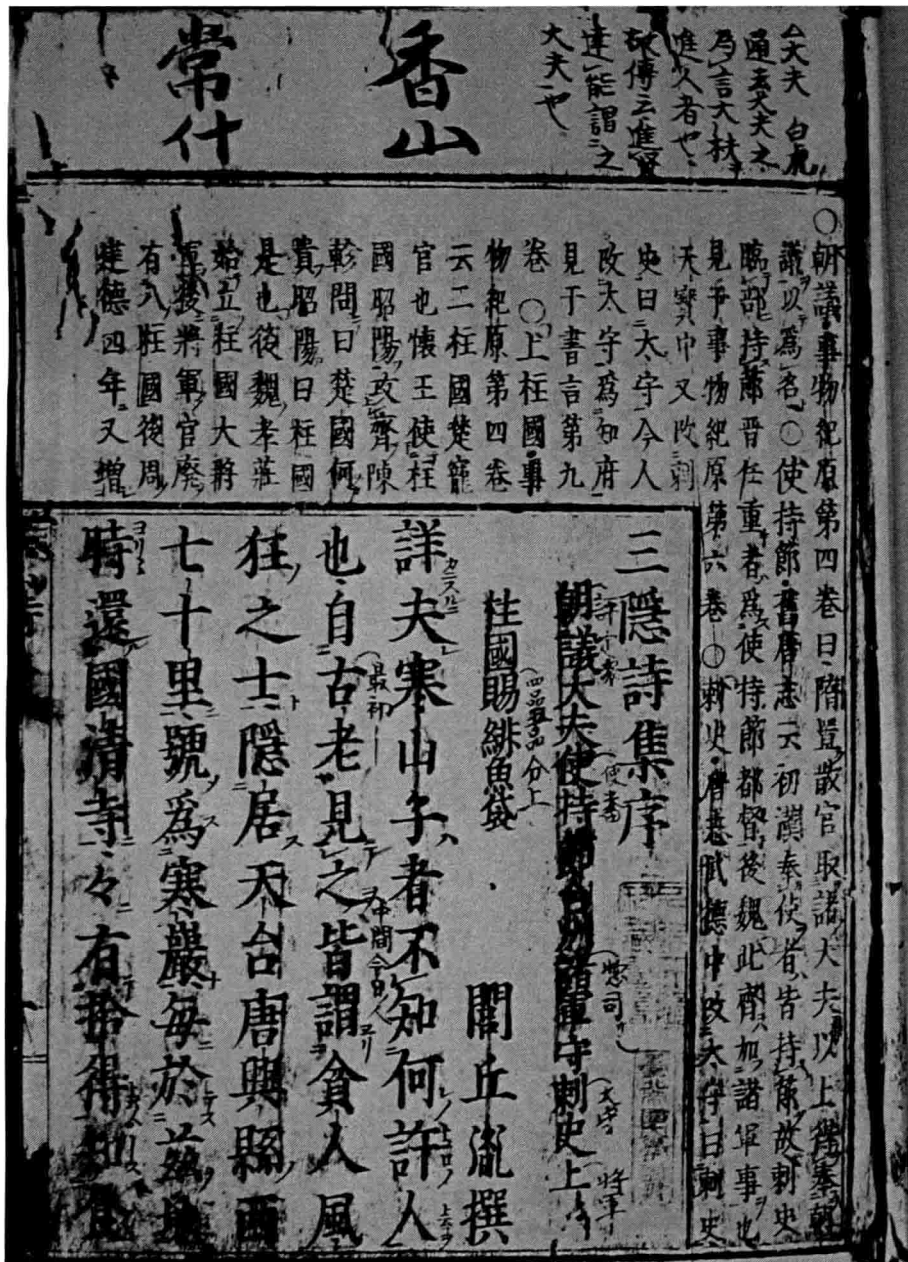 香山
常什
△大夫 白虎
通云大夫之
為言大扶
進人者也
故傳云進賢
達能謂之
大夫也
○朝議事物紀原第四卷曰隋置散官取諸大夫以上
議以為名○使持節舊唐志云初漢奉使者皆持節故刺史
臨部持節晋任重者為使持節都督後魏北齊加諸軍事也
見于事物紀原第六卷○刺史唐志武德中改太守曰刺史
天寶中又改刺
史曰太守今人
改太守為知府
見于書言第九
卷 ○上柱國事
物紀原第四卷
云二柱國楚寵
官也懷王使柱
國昭陽攻齊陳
軫問曰楚國何
貴昭陽曰柱國
是也後魏孝莊
始立柱國大將
軍後將軍官廢
有八柱國後周
建德四年又增
三隱詩集序
朝議大夫使持節台州諸軍守刺史上
柱國賜緋魚袋
閭丘胤撰
詳夫寒山子者不知何許人
也自古老見之皆謂貧人風
狂之士隱居天台唐興縣西
七十里號為寒巖每於茲地
時還國清寺々有拾得知食